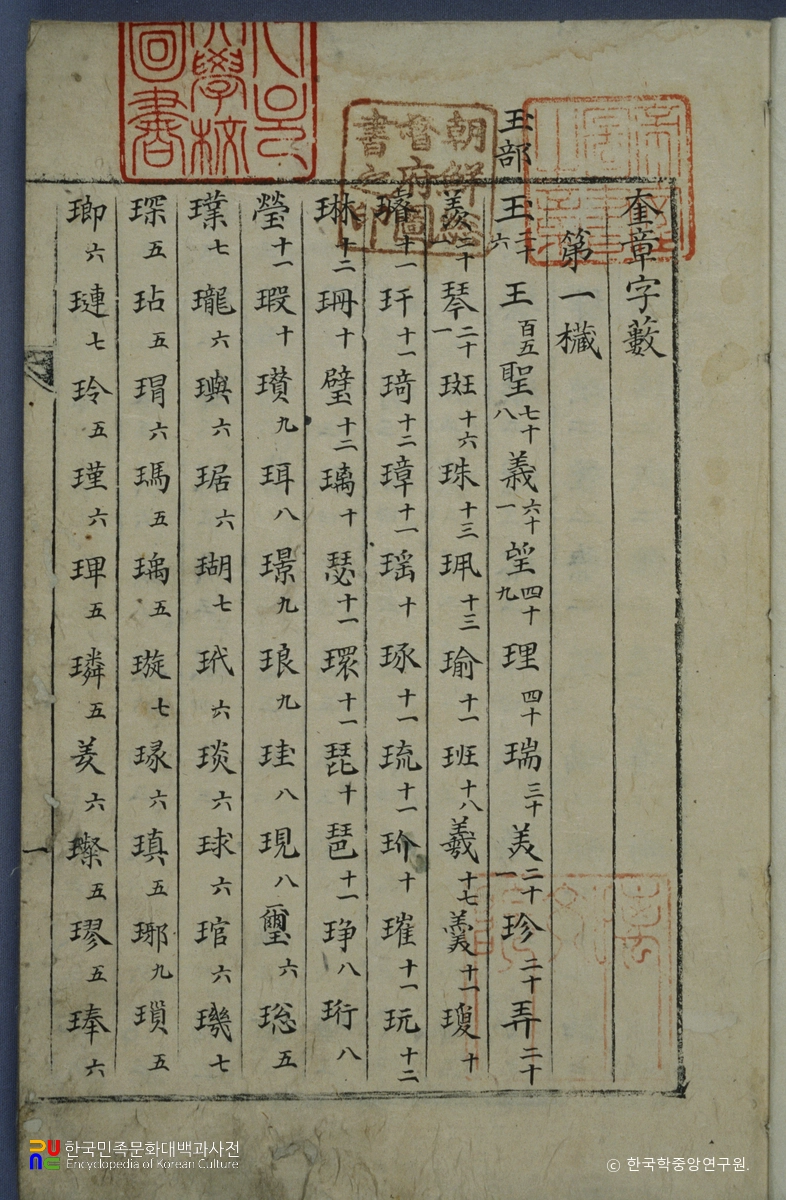 玉部
奎章字藪
第一欌
玉 二十六 王 百五 聖 七十八 義 六十一 望 四十九 理 四十 瑞 三十 美 二十一 珍 二十 弄 二十
羡 二十一 琴 二十一 斑 十六 珠 十三 珮 十三 瑜 十一 班 十八 羲 十七 羹 十一 瓊 十
十一 玕 十一 琦 十二 璋 十一 瑶 十 琢 十一 琉 十一 玠 十 璀 十一 玩 十二
琳 十二 珊 十 璧 十二 璃 十 瑟 十一 環 十一 琵 十 琶 十一 琤 八 珩 八
瑩 十一 瑕 十 瓚 九 珥 八 璟 九 琅 九 珪 八 現 八 璽 六 瑽 五
璞 七 瓏 六 璵 六 琚 六 瑚 七 玳 六 琰 六 球 六 琯 六 璣 七
琛 五 玷 五 瑁 六 瑪 五 瑀 五 璇 七 瑑 六 瑱 五 琊 九 瑣 五
瑯 六 璉 七 玲 五 瑾 六 琕 五 璘 五 羑 六 璨 五 璆 五 琫 六
一
朝鮮總督府圖書之印
한국민족문화대백과사전
Encyclopedia of Korean Culture
© 한국학중앙연구원.